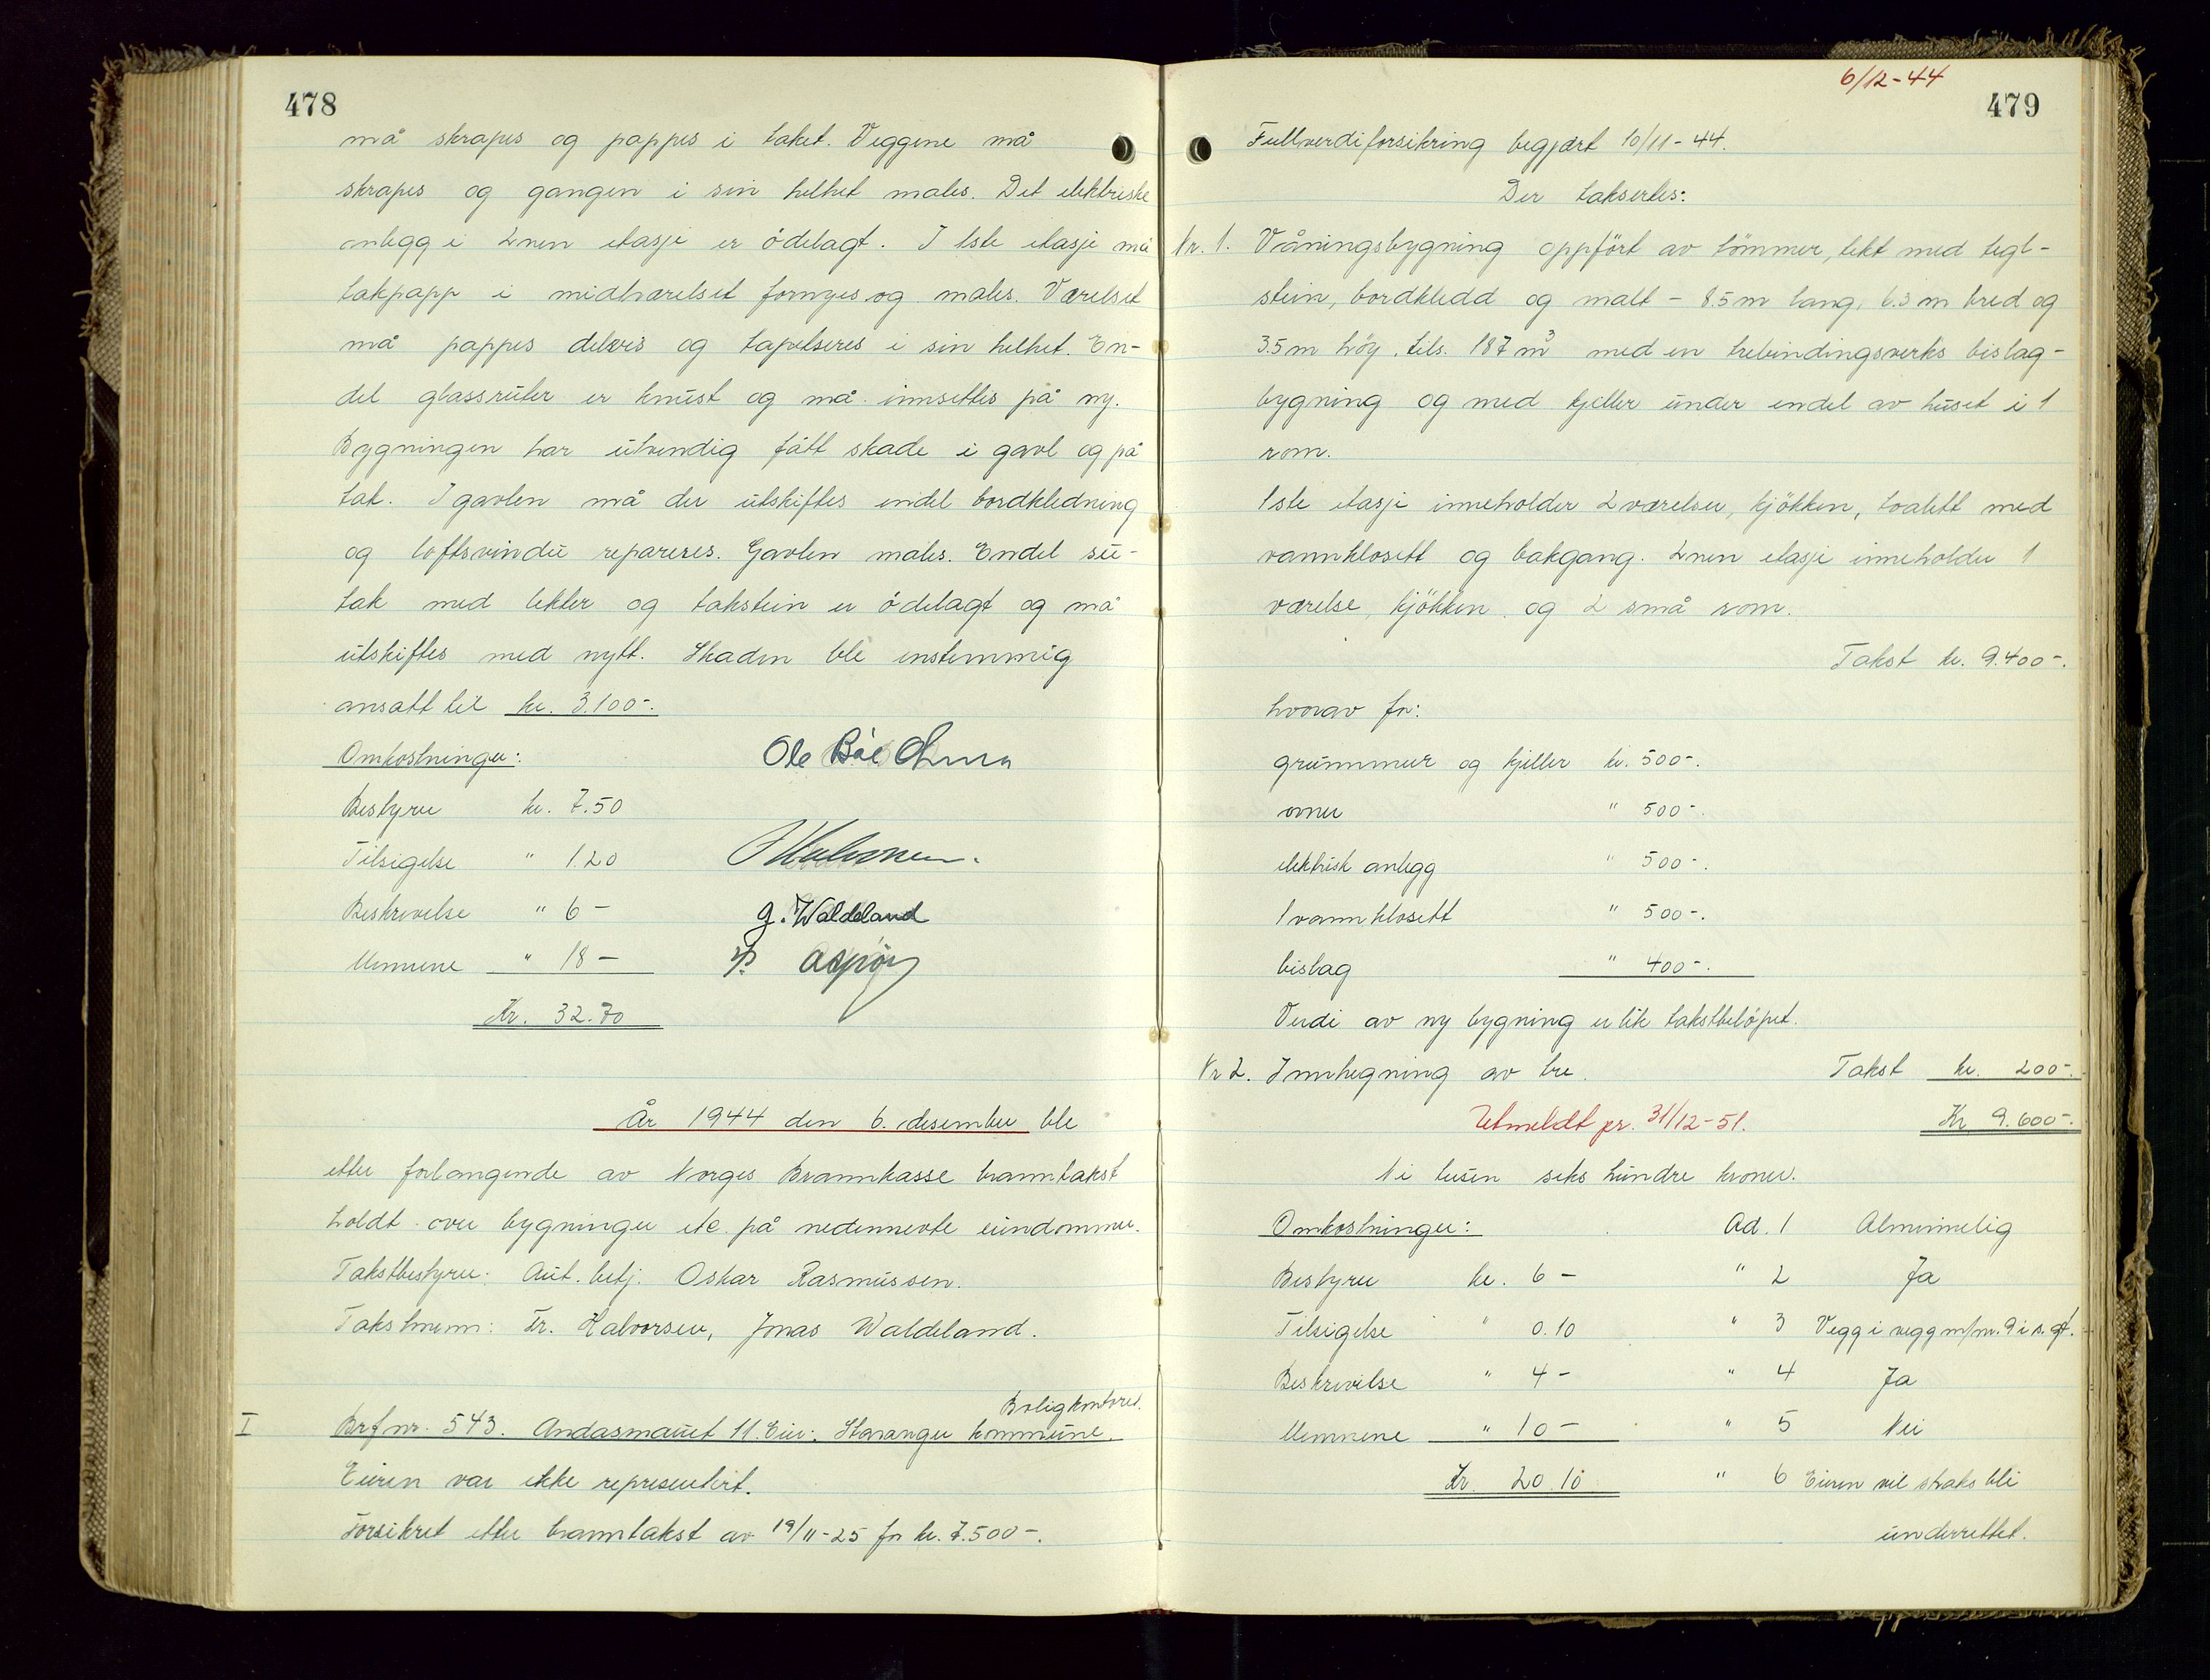 478
må skrapes og pappes i taket. Veggene må
skrapes og gangen i sin helhet males. Det elektriske
anlegg i 2nen etasje er ödelagt. I 1ste etasje må
takpapp i midtværelset fornyes og males. Værelset
må pappes delvis og tapetseres i sin helhet. En-
del glassruter er knust og må innsettes på ny.
Bygningen har utvendig fått skade i gavl og på
tak. I gavlen må der utskiftes endel bordkledning
og loftsvindu repareres. Gavlen males. Endel su-
tak med lekter og takstein er ödelagt og må
utskiftes med nytt. Skaden ble enstemmig
ansatt til kr. 3.100-.
Omkostninger:
Ole
Bestyrer kr. 7.50
Tilsigelse " 1.20
Beskrivelse " 6 - g. Waldeland
Mennene " 18 -
Kr. 32.70
År 1944 den 6. desember ble
etter forlangende av Norges Brannkasse branntakst
holdt over bygninger etc. på nedennevte eiendommer.
Takstbestyrer: Aut. betj. Oskar Rasmussen.
Takstmenn: Fr. Halvorsen, Jonas Waldeland.
Boligkontoret.
I Brf nr. 543. Andasmauet 11. Eier: Stavanger kommune.
Eieren var ikke representert.
Forsikret etter branntakst av 19/11-25 for kr. 7.500-.
6/12-44
479
Fullverdiforsikring begjært 10/11-44.
Der takseres:
Nr. 1. Våningsbygning oppfört av tömmer, tekt med tegl-
stein, bordkledd og malt - 8.5 m lang, 6.3 m bred og
3.5 m höy, tils. 187 m³ med en trebindingsverks bislag-
bygning og med kjeller under endel av huset i 1
rom.
1ste etasje inneholder 2 værelser, kjökken, toalett med
vannklosett og bakgang. 2nen etasje inneholder 1
værelse, kjökken og 2 små rom.
Takst kr. 9.400-.
hvorav for:
grunnmur og kjeller kr. 500-.
ovner " 500-.
elektrisk anlegg " 500-.
1 vannklosett " 500-.
bislag " 400-.
Verdi av ny bygning er lik takstbelöpet.
Nr 2. Innhegning av tre. Takst kr. 200-.
Utmeldt pr. 31/12-51. Kr. 9.600-.
Ni tusen seks hundre kroner.
Omkostninger: Ad. 1 Alminnelig
Bestyrer kr. 6 - " 2 Ja
Tilsigelse " 0.10 " 3 Vegg i vegg m/nr. 9 i s. gt.
Beskrivelse " 4 - " 4 Ja
Mennene " 10 - " 5 Nei
Kr. 20.10 " 6 Eieren vil straks bli
underrettet.